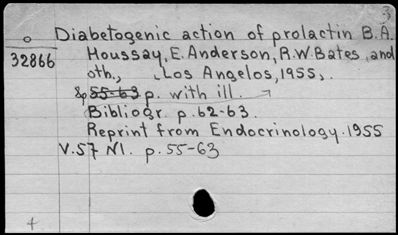 3
o Diabetogenic action of prolactin B.A.
32866 Houssay, E. Anderson, R.W. Bates, and
oth., Los Angelos, 1955.
55-63 p. with ill.
Bibliogr. p. 62-63.
Reprint from Endocrinology. 1955
V.57 N1. p. 55-63
4